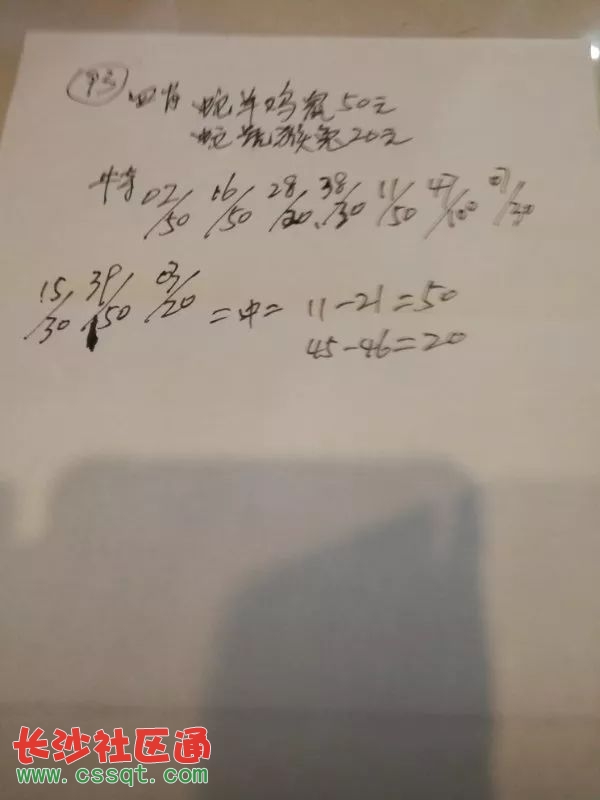 四肖 蛇羊鸡鼠50元
蛇 猴兔20元
特 02/50 16/50 28/20 38/30 11/50 47/100 07/30
15/30 39/50 03/20 二中二 11-21=50
45-46=20
长沙社区通
www.cssqt.com